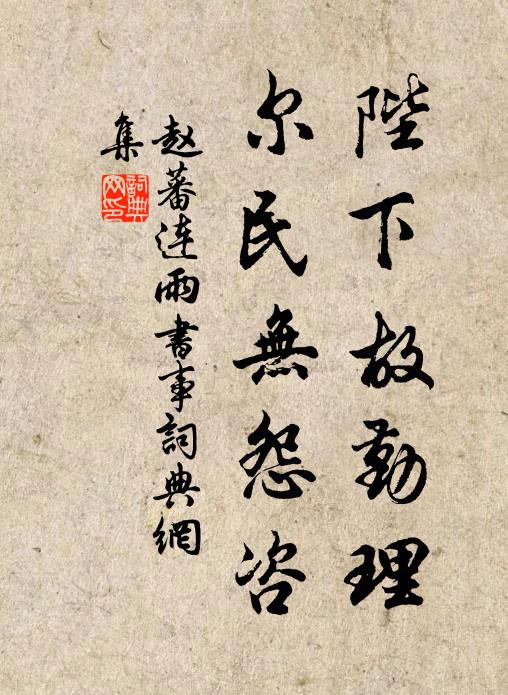 陛下故勤理
尔民無怨咨
赵蕃连雨書事詞典網
集
詞典
网印